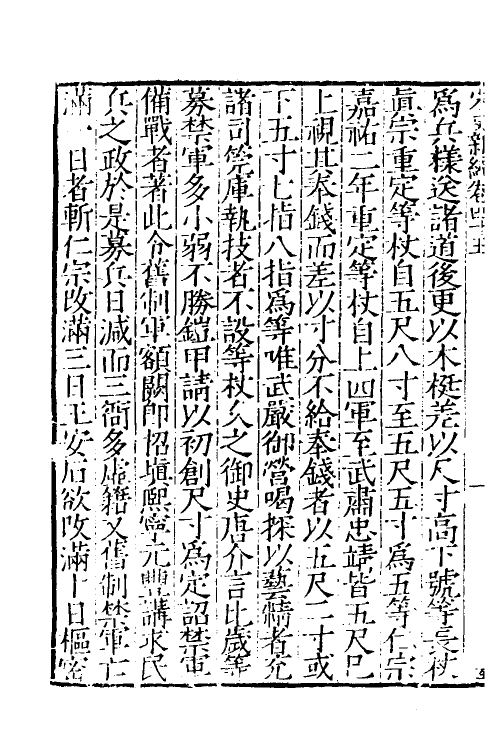 宋史新編卷四十五
爲兵樣送諸道後更以木梃差以尺寸高下號等長杖
眞宗重定等杖自五尺八寸至五尺五寸爲五等仁宗
嘉祐二年重定等杖自上四軍至武肅忠靖皆五尺巳
上視其奉錢而差以寸分不給奉錢者以五尺二寸或
下五寸七指八指爲等唯武嚴御營喝探以藝精者充
諸司筦庫執技者不設等杖久之御史唐介言比歲等
募禁軍多小弱不勝鎧甲請以初創尺寸爲定詔禁軍
備戰者著此令舊制軍額闕卽招塡熙寧元豐講求民
兵之政於是募兵日減而三衙多虛籍又舊制禁軍亡
滿一日者斬仁宗改滿三日王安石欲改滿十日樞密